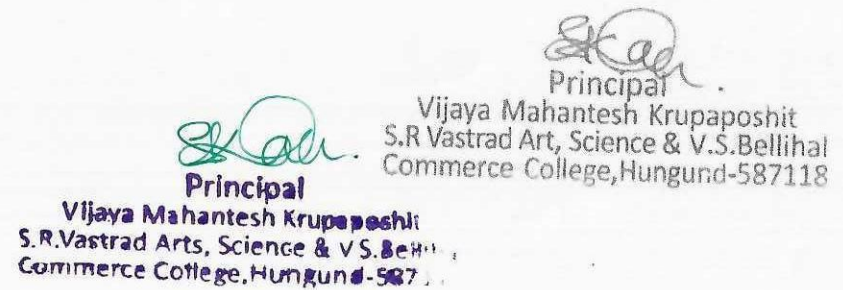 Principal
Vijaya Mahantesh Krupaposhit
S.R Vastrad Art, Science & V.S.Bellihal
Commerce College,Hungund-587118
Principal
Vijaya Mahantesh Krupaposhit
S.R.Vastrad Arts, Science & V S.
Commerce College,Hungund-587